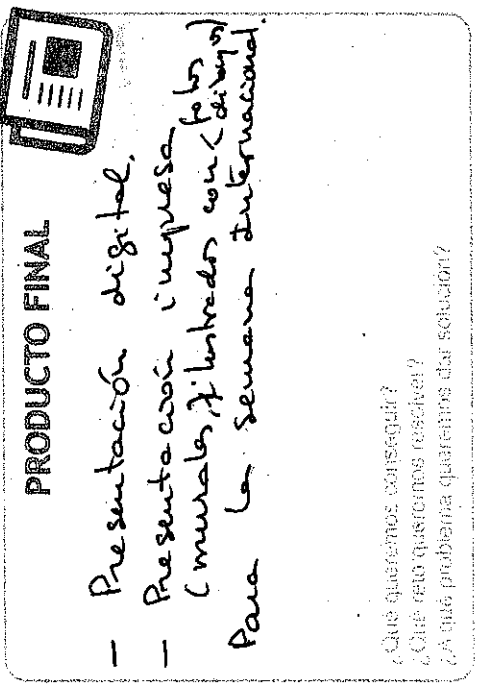 PRODUCTO FINAL
— Presentación digital.
— Presentación impresa
(murales, ilustrados con < fotos
dibujos)
Para la Semana Internacional.
¿Qué queremos conseguir?
¿Qué reto queremos resolver?
¿A qué problema queremos dar solución?